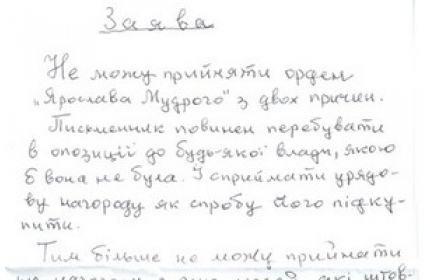 Заява
Не можу прийняти орден
„Ярослава Мудрого" з двох причин.
Письменник повинен перебувати
в опозиції до будь-якої влади, якою
б вона не була. І сприймати урядо-
ву нагороду як спробу його підку-
пити.
Тим більше не можу приймати